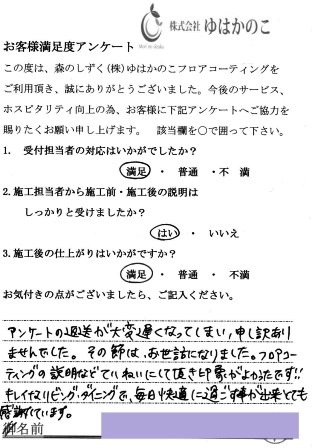 株式会社 ゆはかのこ
お客様満足度アンケート
この度は、森のしずく(株)ゆはかのこフロアコーティングを
ご利用頂き、誠にありがとうございました。今後のサービス、
ホスピタリティ向上の為、お客様に下記アンケートへご協力を
賜りたくお願い申し上げます。 該当欄を〇で囲って下さい。
1. 受付担当者の対応はいかがでしたか?
満足 ・ 普通 ・不 満
2.施工担当者から施工前・施工後の説明は
しっかりと受けましたか?
はい ・ いいえ
3.施工後の仕上がりはいかがですか?
満足 ・ 普通 ・ 不満
お気付きの点がございましたら、ご記入ください。
アンケートの返送が大変遅くなってしまい、申し訳あり
ませんでした。その節は、お世話になりました。フロアコー
ティングの説明などていねいにして頂き印象がよかったです!!
キレイなリビング・ダイニングで、毎日快適に過ごす事が出来とても
感謝しています。
御名前